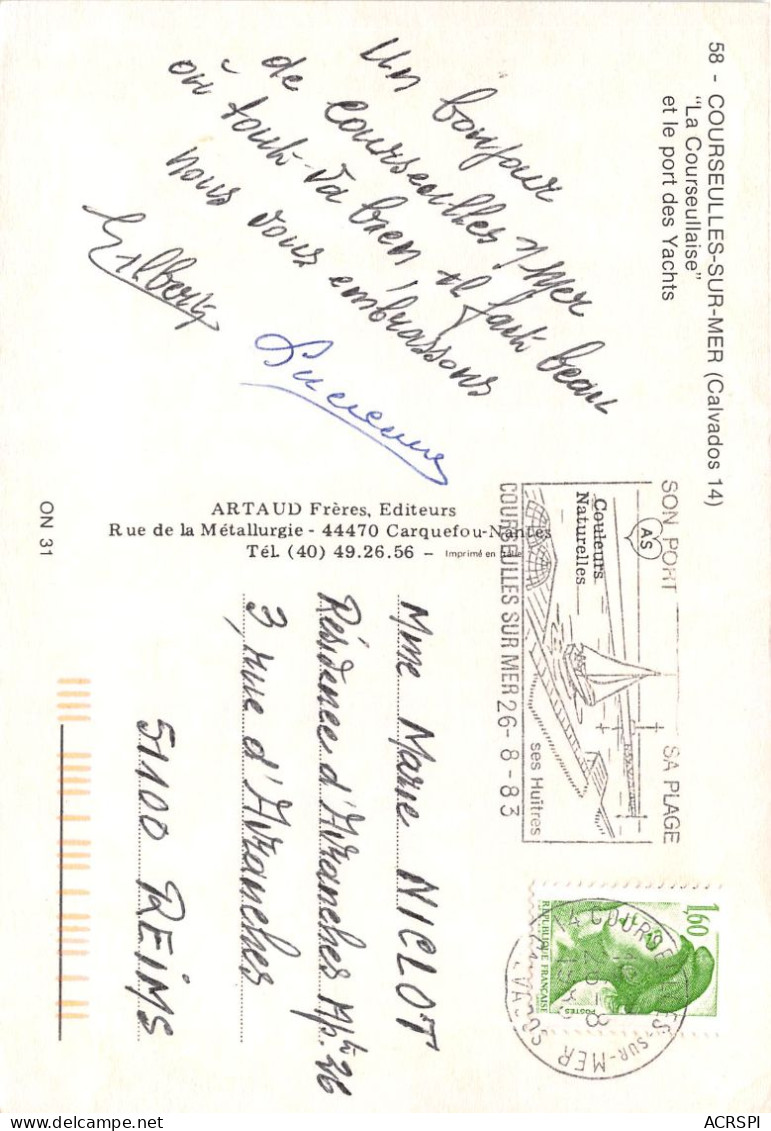 58 - COURSEULLES-SUR-MER (Calvados 14)
"La Courseullaise"
et le port des Yachts
Un bonjour
de Courseulles s/Mer
où tout va bien, il fait beau
nous vous embrassons
Gilbert
Lucienne
ARTAUD Frères, Editeurs
Rue de la Métallurgie - 44470 Carquefou-Nantes
Tél. (40) 49.26.56 – Imprimé en
ON 31
AS
Couleurs
Naturelles
SON PORT SA PLAGE
ses Huîtres
COURSEULLES SUR MER 26-8-83
1,60
REPUBLIQUE FRANÇAISE
POSTES
14 COURSEULLES-SUR-MER
CALVADOS
Mme Marie NICLOT
Résidence d'Avranches Apt 26
3, rue d'Avranches
51100 REIMS
ACRSPI